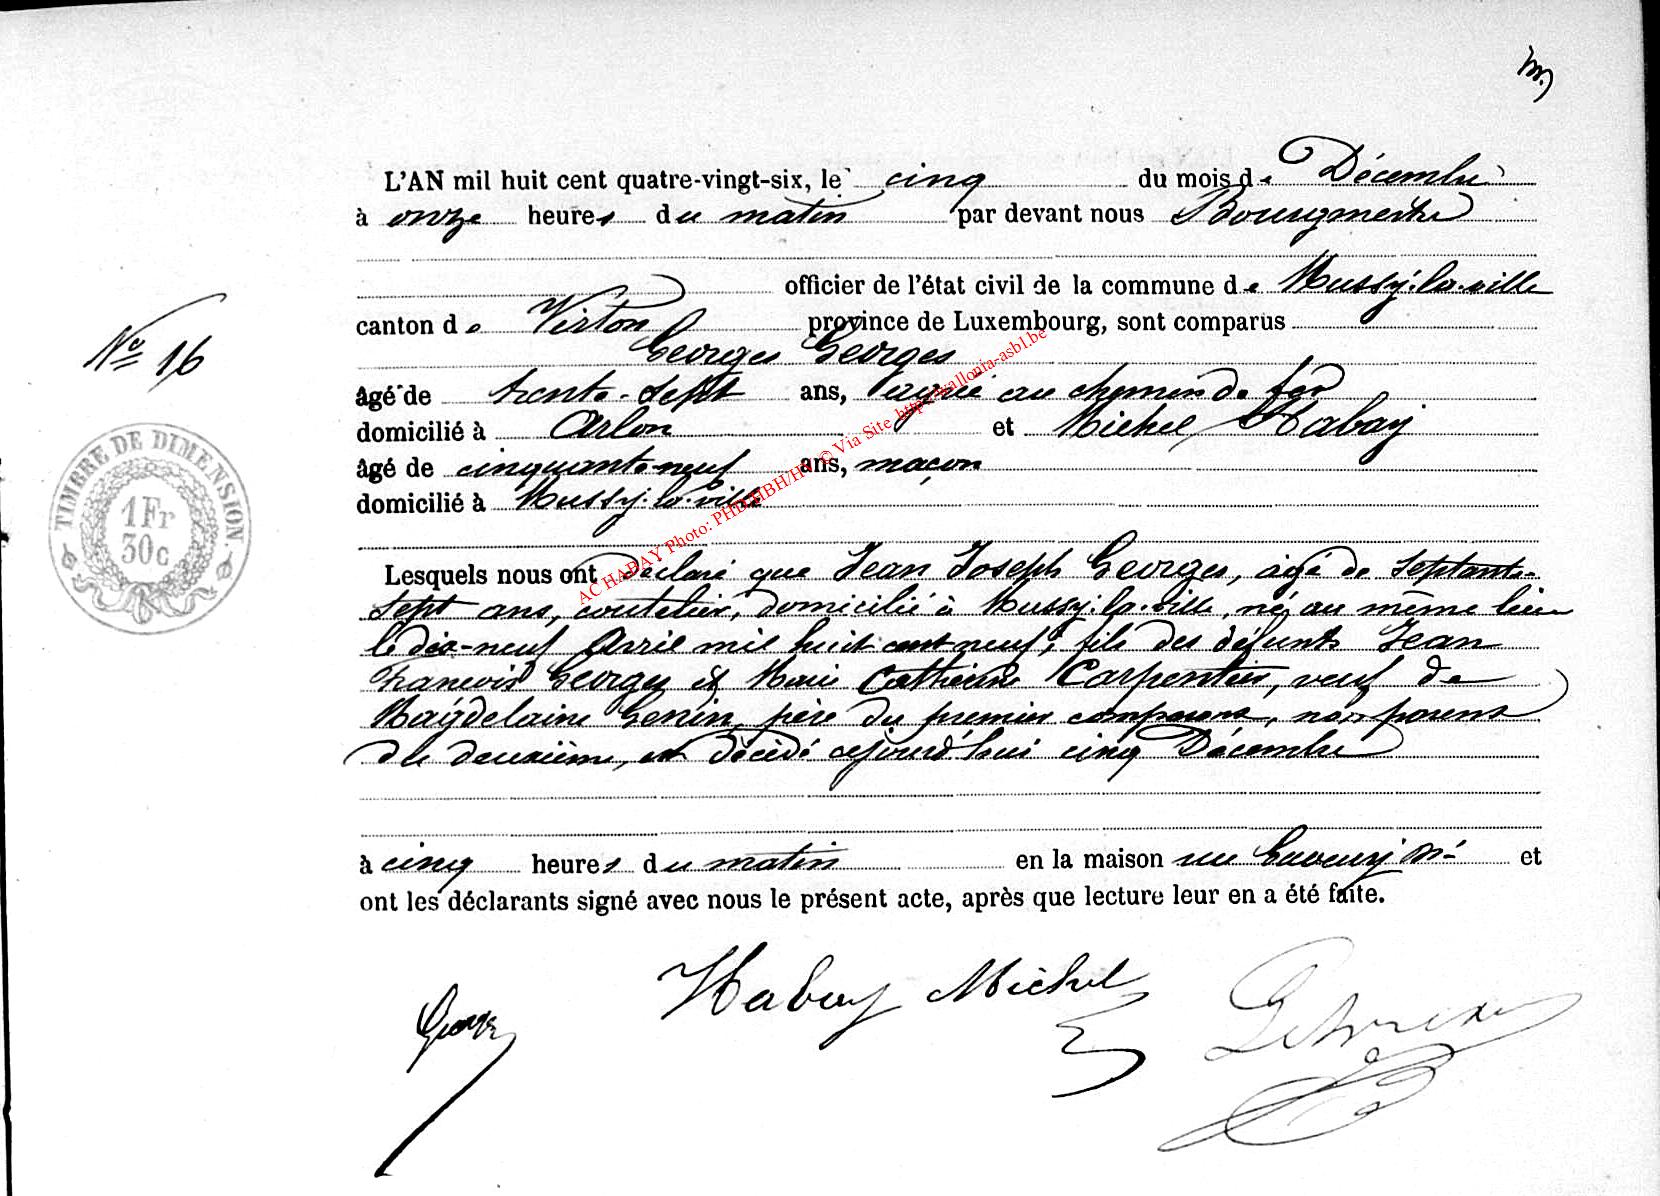 L'AN mil huit cent quatre-vingt-six, le cinq du mois de Décembre
à onze heures du matin par devant nous Bourgmestre
officier de l'état civil de la commune de Mussy-la-ville
canton de Virton province de Luxembourg, sont comparus
Georges Georges
âgé de trente-sept ans, au chemin de fer
domicilié à Arlon et Michel Habay
âgé de cinquante-neuf ans, maçon
domicilié à Mussy-la-ville
Lesquels nous ont déclaré que Jean Joseph Georges, âgé de septante-
sept ans, coutelier, domicilié à Mussy-la-ville, né au même lieu
le dix-neuf Avril mil huit cent neuf, fils des défunts Jean
François Georges et Marie Catherine Carpentier, veuf de
Magdelaine Genin, père du premier comparant, non parent
du deuxième, est décédé cejourd'hui cinq Décembre
à cinq heures du matin en la maison rue et
ont les déclarants signé avec nous le présent acte, après que lecture leur en a été faite.
No 16
TIMBRE DE DIMENSION.
1 Fr
30c
Habay Michel
ACHABAY Photo: PHD/HBH/HV © Via Site http://wallonia-asbl.be